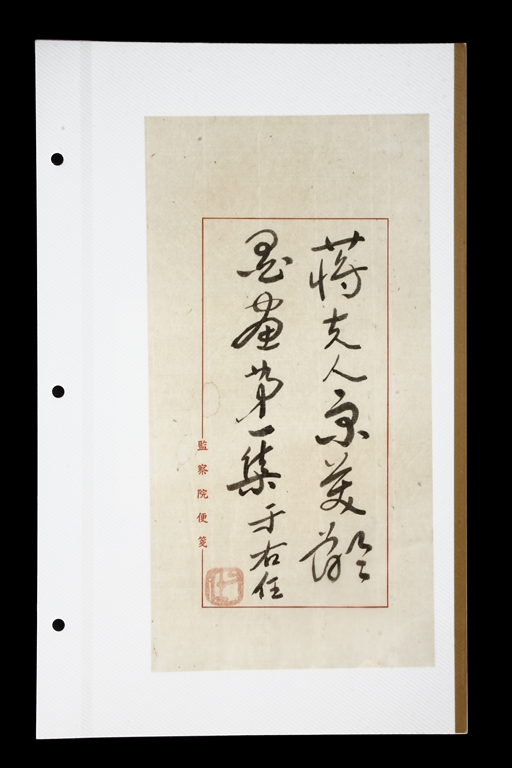 蔣夫人宋美齡
墨畫第一集于右任
監察院便箋